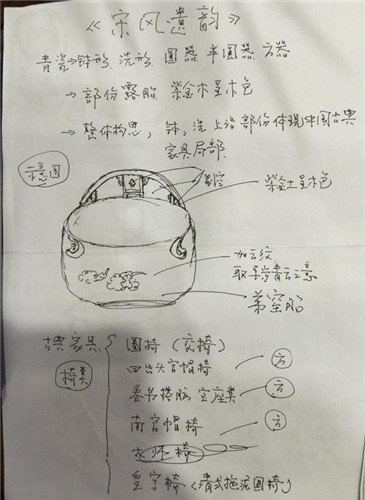 《宋风遗韵》
青瓷→钵形 洗形 圆器 半圆器 方器
→部份露胎 紫金木呈木色
→整体构思，钵，洗上沿部份体现中国古典
家具局部.
示意图
紫金土呈木色
加云纹
取平步青云之意
弟窑胎
古典家具
椅类
圆椅（交椅）
四出头官帽椅 方
卷书搭脑 宝座类 方
南官帽椅 方
皇宫椅（清式拖泥圈椅）